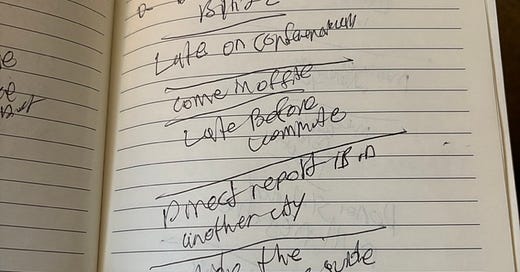 Late on conference call
Come in office
Late Before
commute
Direct report is in
another city
the
guide